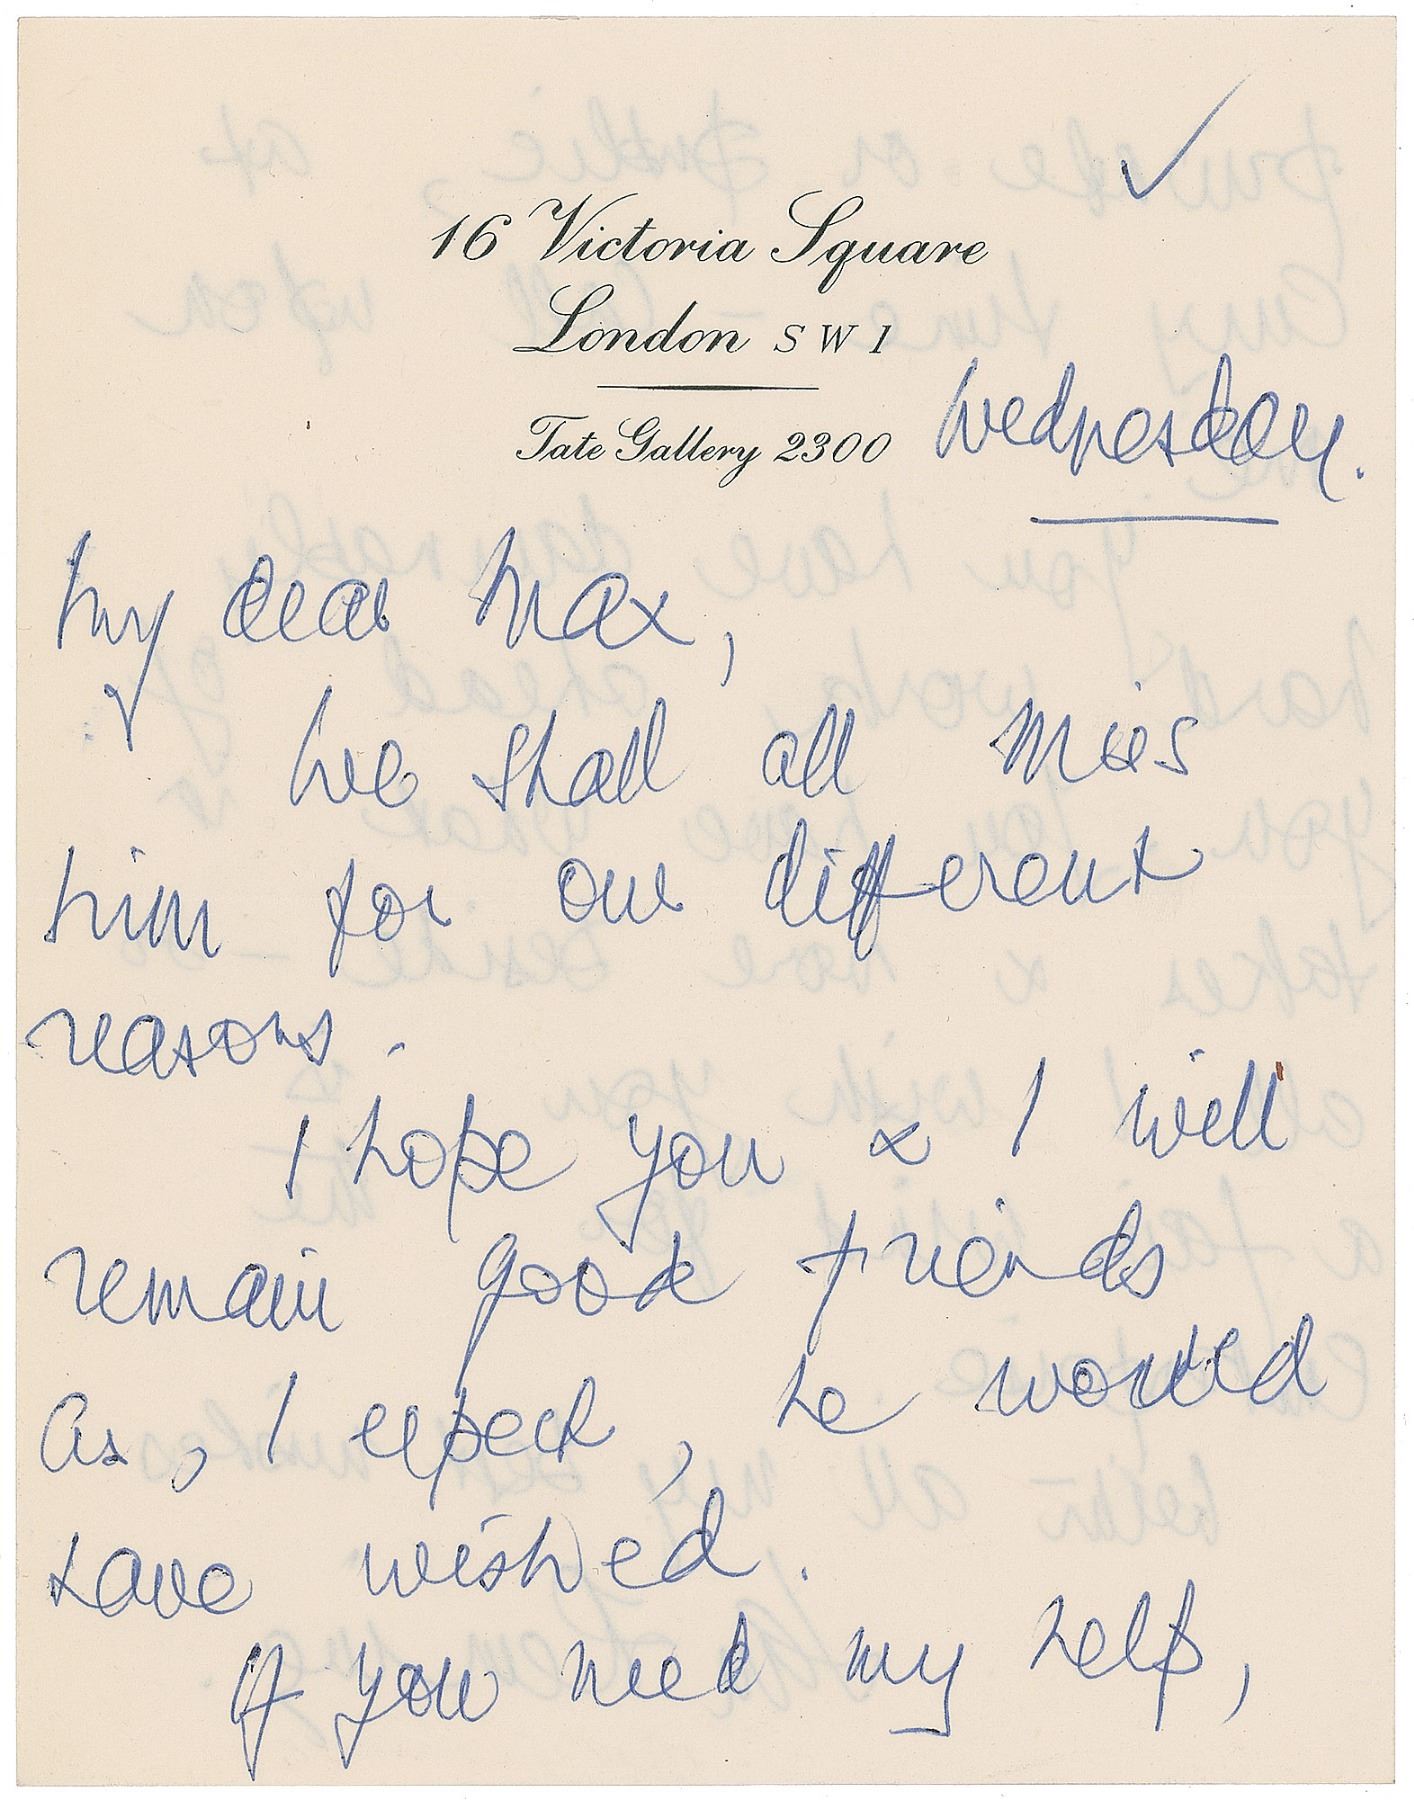 16 Victoria Square
London SW1
Tate Gallery 2300
Wednesday.
My dear Max,
We shall all miss
him for our different
reasons.
I hope you & I will
remain good friends
as, I expect, he would
have wished.
If you need my help,